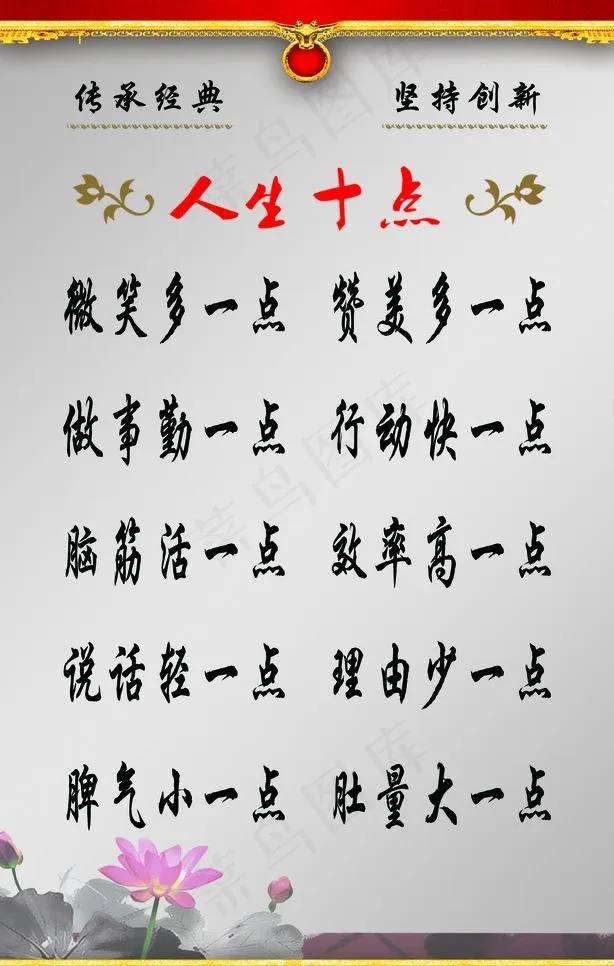 传承经典 坚持创新
人生十点
微笑多一点 赞美多一点
做事勤一点 行动快一点
脑筋活一点 效率高一点
说话轻一点 理由少一点
脾气小一点 肚量大一点
菜鸟图库
菜鸟图库
菜鸟图库